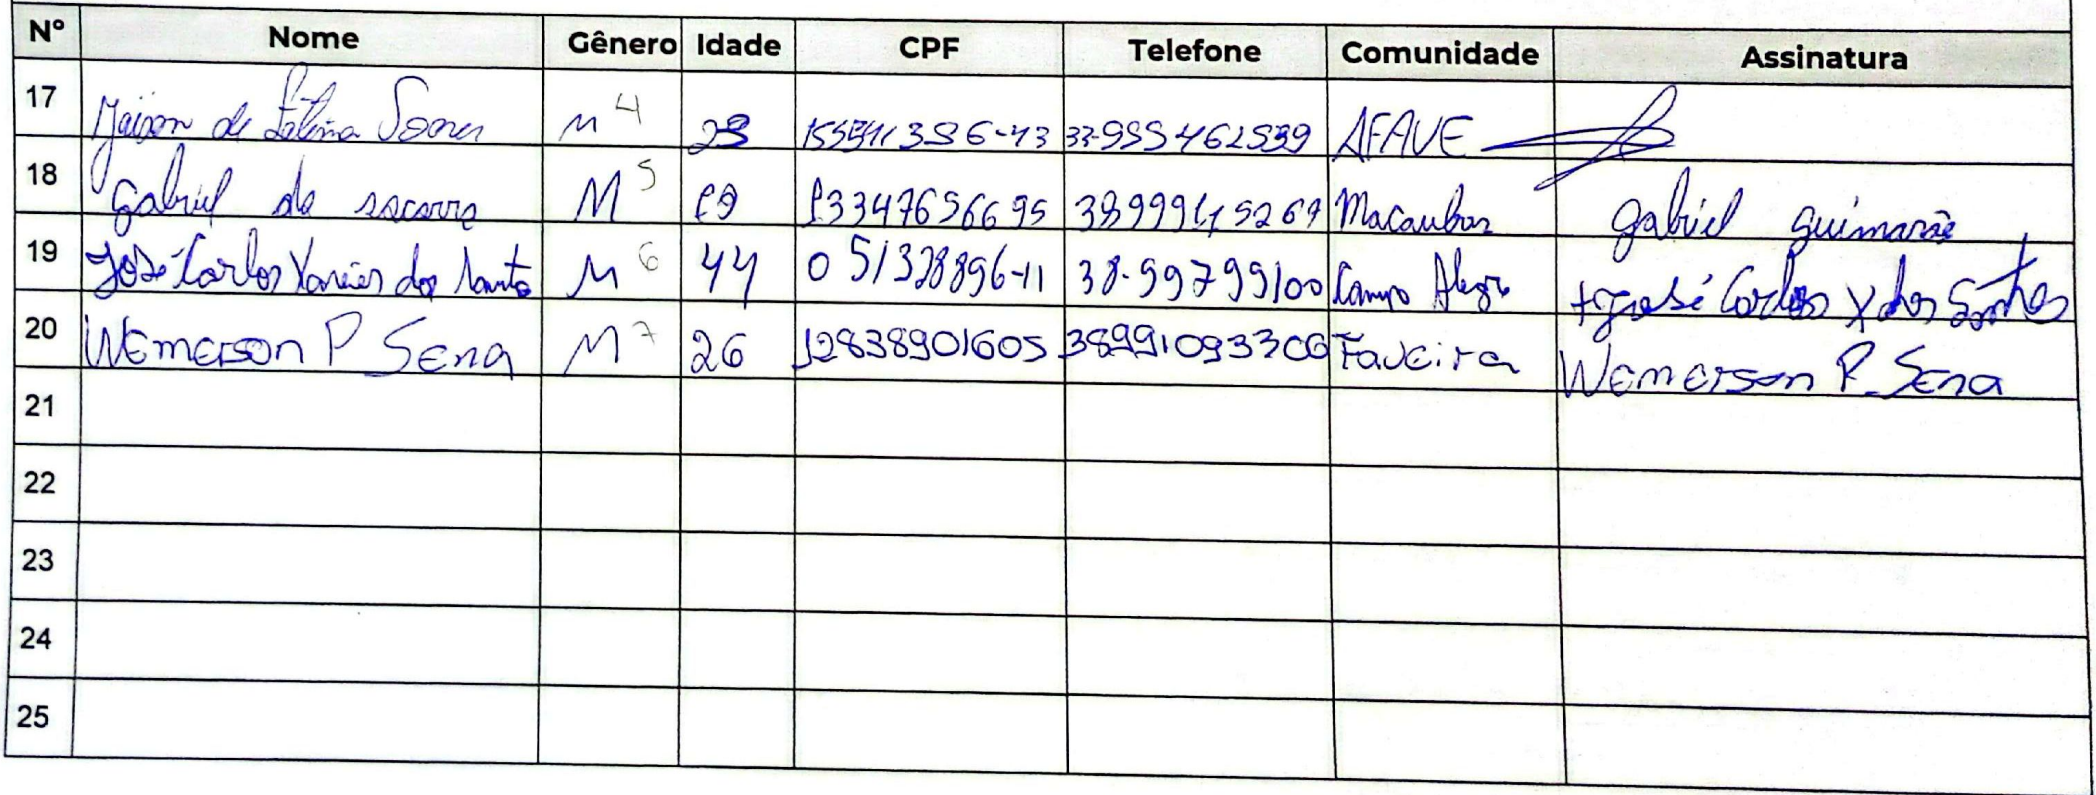 Nº Nome Gênero Idade CPF Telefone Comunidade Assinatura
17 de Fatima Soares M 4 23 AFAVE
18 Gabriel do socorro M 5 19 13347656695 Macaubas Gabriel Guimarãe
19 José Carlos Xavier dos Santos M 6 44 051328896-11 38-99799100 Campo Alegre José Carlos X dos Santos
20 Wemerson P Sena M 7 26 12838901605 38991093306 Faveira Wemerson P. Sena
21
22
23
24
25